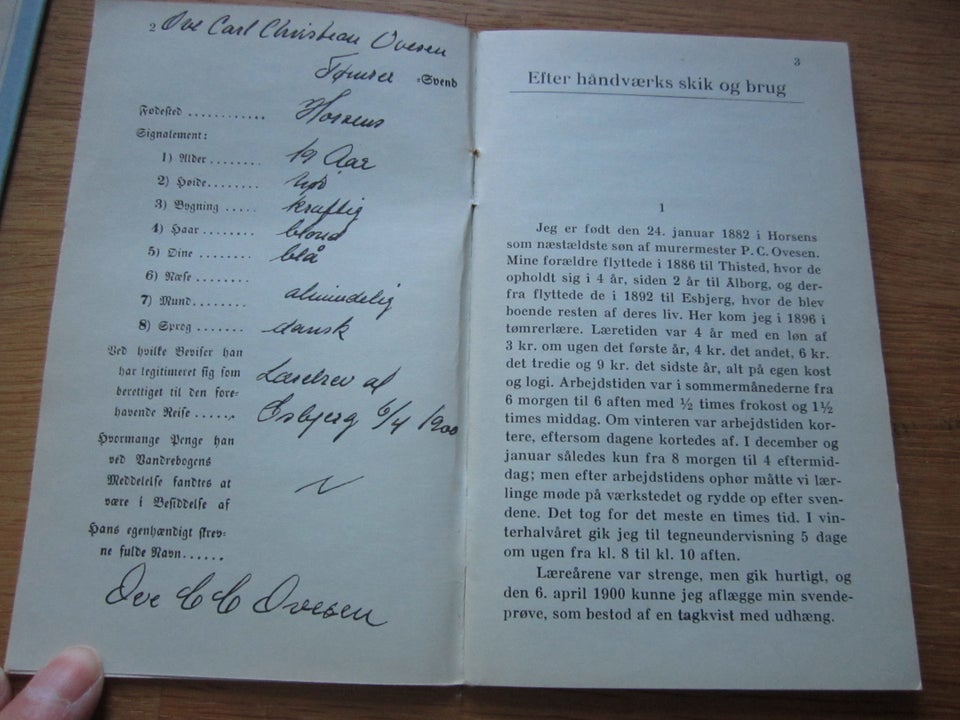 2 Ove Carl Christian Ovesen
Tømrer =Svend
Fødested ............ Horsens
Signalement:
1) Alder ....... 19 Aar
2) Høide........ høi
3) Bygning ..... kraftig
4) Haar ........ blond
5) Øine ........ blå
6) Næse ........
7) Mund........ almindelig
8) Sprog ....... dansk
Ved hvilke Beviser han
har legitimeret sig som
berettiget til den fore=
havende Reise ......
Lærebrev af
Esbjerg 6/4 1900
Hvormange Penge han
ved Vandrebogens
Meddelelse fandtes at
være i Besiddelse af
Hans egenhændigt skrev=
ne fulde Navn......
Ove C C Ovesen
3
Efter håndværks skik og brug
1
Jeg er født den 24. januar 1882 i Horsens
som næstældste søn af murermester P. C. Ovesen.
Mine forældre flyttede i 1886 til Thisted, hvor de
opholdt sig i 4 år, siden 2 år til Ålborg, og der-
fra flyttede de i 1892 til Esbjerg, hvor de blev
boende resten af deres liv. Her kom jeg i 1896 i
tømrerlære. Læretiden var 4 år med en løn af
3 kr. om ugen det første år, 4 kr. det andet, 6 kr.
det tredie og 9 kr. det sidste år, alt på egen kost
og logi. Arbejdstiden var i sommermånederne fra
6 morgen til 6 aften med ½ times frokost og 1½
times middag. Om vinteren var arbejdstiden kor-
tere, eftersom dagene kortedes af. I december og
januar således kun fra 8 morgen til 4 eftermid-
dag; men efter arbejdstidens ophør måtte vi lær-
linge møde på værkstedet og rydde op efter sven-
dene. Det tog for det meste en times tid. I vin-
terhalvåret gik jeg til tegneundervisning 5 dage
om ugen fra kl. 8 til kl. 10 aften.
Læreårene var strenge, men gik hurtigt, og
den 6. april 1900 kunne jeg aflægge min svende-
prøve, som bestod af en tagkvist med udhæng.